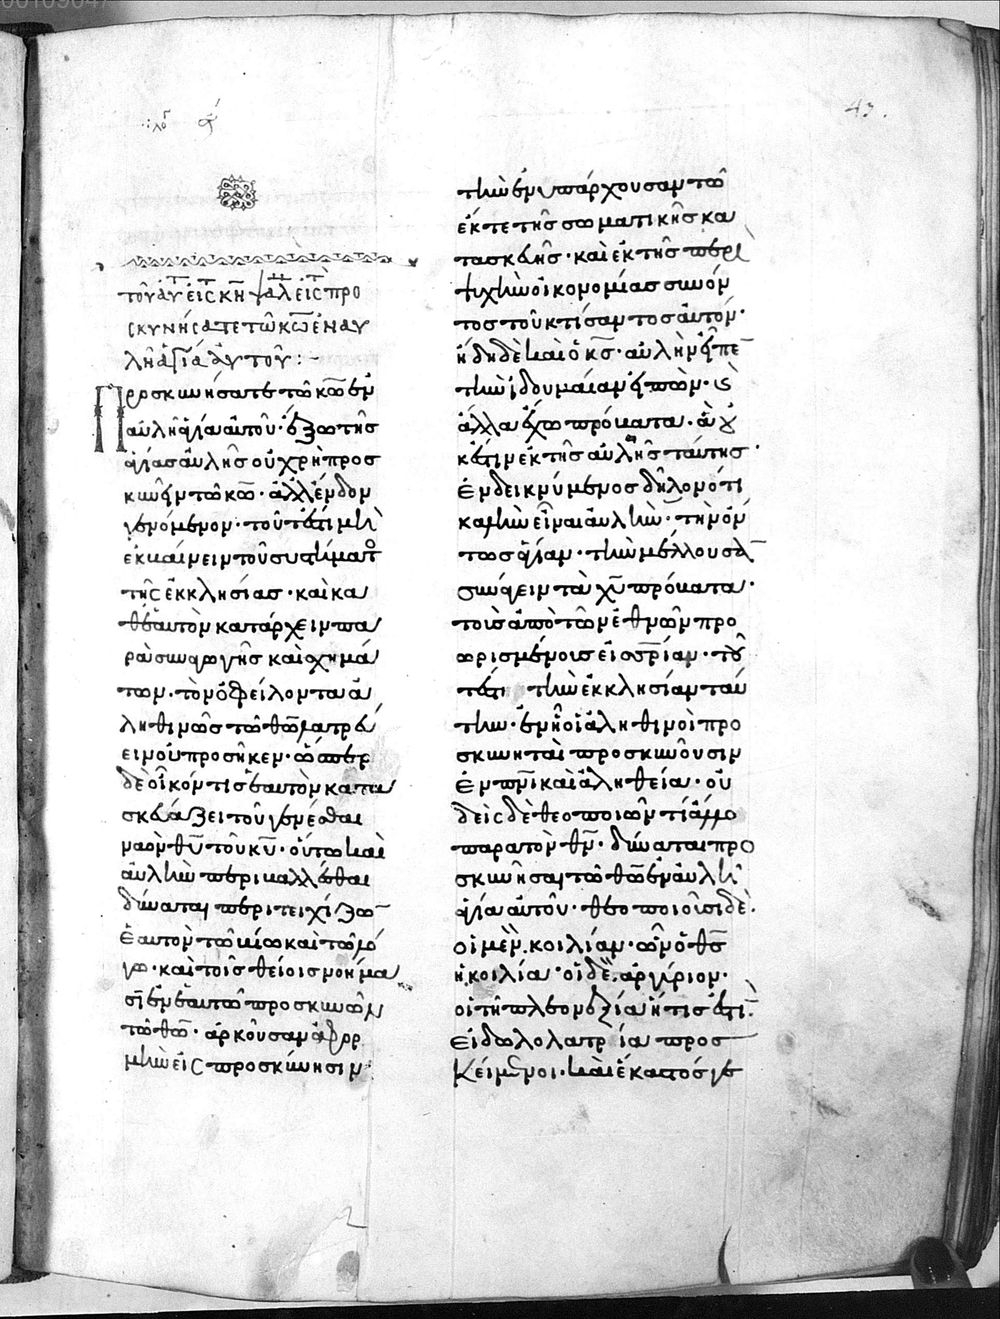 43.
τοῦ αὐτ εἰς κη ψαλ εἰς τὸ προ
σκυνήσατε τῶ κω ἐν αυ
λῆ ἁγία αὐτοῦ :-
Προσκυνήσατε τῶ κω ἐν
αὐλῆ ἁγία αὐτοῦ· ἔξω τῆς
ἁγίας αὐλῆς οὐ χρὴ προσ
κυνεῖν τῶ κω· ἀλλ' ἔνδον
γενόμενον· τουτέστι μὴ
ἐκβαίνειν τοῦ συστήματος
τῆς ἐκκλησίας· καὶ κα
θ' ἑαυτὸν κατάρχειν πα
ρασυναγωγῆς καὶ σχημά
των. τὸν ὀφείλοντα ἀ
ληθινῶς τῶ θω λατρεύ
ειν οὐ προσῆκεν· ὥσπερ
δὲ οἶκόν τις ἑαυτὸν κατα
σκευάζει τοῦ γενέσθαι
ναὸν θυ τοῦ κυ· οὕτω καὶ
αὐλὴν περικαλλῆσθαι
δύναται περιτειχίζων
ἑαυτὸν τῶ βίω καὶ τῶ λό
γω· καὶ τοῖς θείοις νοήμα
σιν ἐν ἑαυτῶ προσκυνῶν
τῶ θω· ἀρκοῦσαν
μὴν εἰς προσκύνησιν
τὴν ἐνυπάρχουσαν τῶ
ἔκ τε τῆς σωματικῆς κα
τασκευῆς· καὶ ἐκ τῆς περὶ
ψυχὴν οἰκονομίας συνόν
τος τοῦ κτίσαντος αὐτόν·
ἤδη δὲ καὶ ὁ κς· αὐλὴν εἶπε
τὴν ἰδουμαίαν εἰπών·
ἄλλα ἔχω πρόβατα· ἃ οὐ
κ ἔστιν ἐκ τῆς αὐλῆς ταύτης·
ἐνδεικνύμενος δηλονότι
καινὴν εἶναι αὐλὴν· τὴν ὄν
τως ἁγίαν· τὴν μέλλουσαν
συνάγειν τὰ χυ πρόβατα·
τοῖς ἀπὸ τῶν ἐθνῶν προ
ωρισμένοις εἰς σωτηρίαν· του
τέστι τὴν ἐκκλησίαν ταύ
την· ἐν ᾗ οἱ ἀληθινοὶ προ
σκυνηταὶ προσκυνοῦσιν
ἐν πνι καὶ ἀληθεία· οὐ
δεὶς δὲ θεοποιῶν τι ἄλλο
παρὰ τὸν θν· δύναται προ
σκυνῆσαι τῶ θω ἐν αὐλῆ
ἁγία αὐτοῦ· θεοποιοῦσι δὲ·
οἱ μὲν κοιλίαν· ὧν ὁ θς
ἡ κοιλία· οἱ δὲ ἀργύριον·
οἱ τῆ πλεονεξία ἥτις ἐστὶν
εἰδωλολατρεία προσ
κείμενοι· καὶ ἕκαστός γε